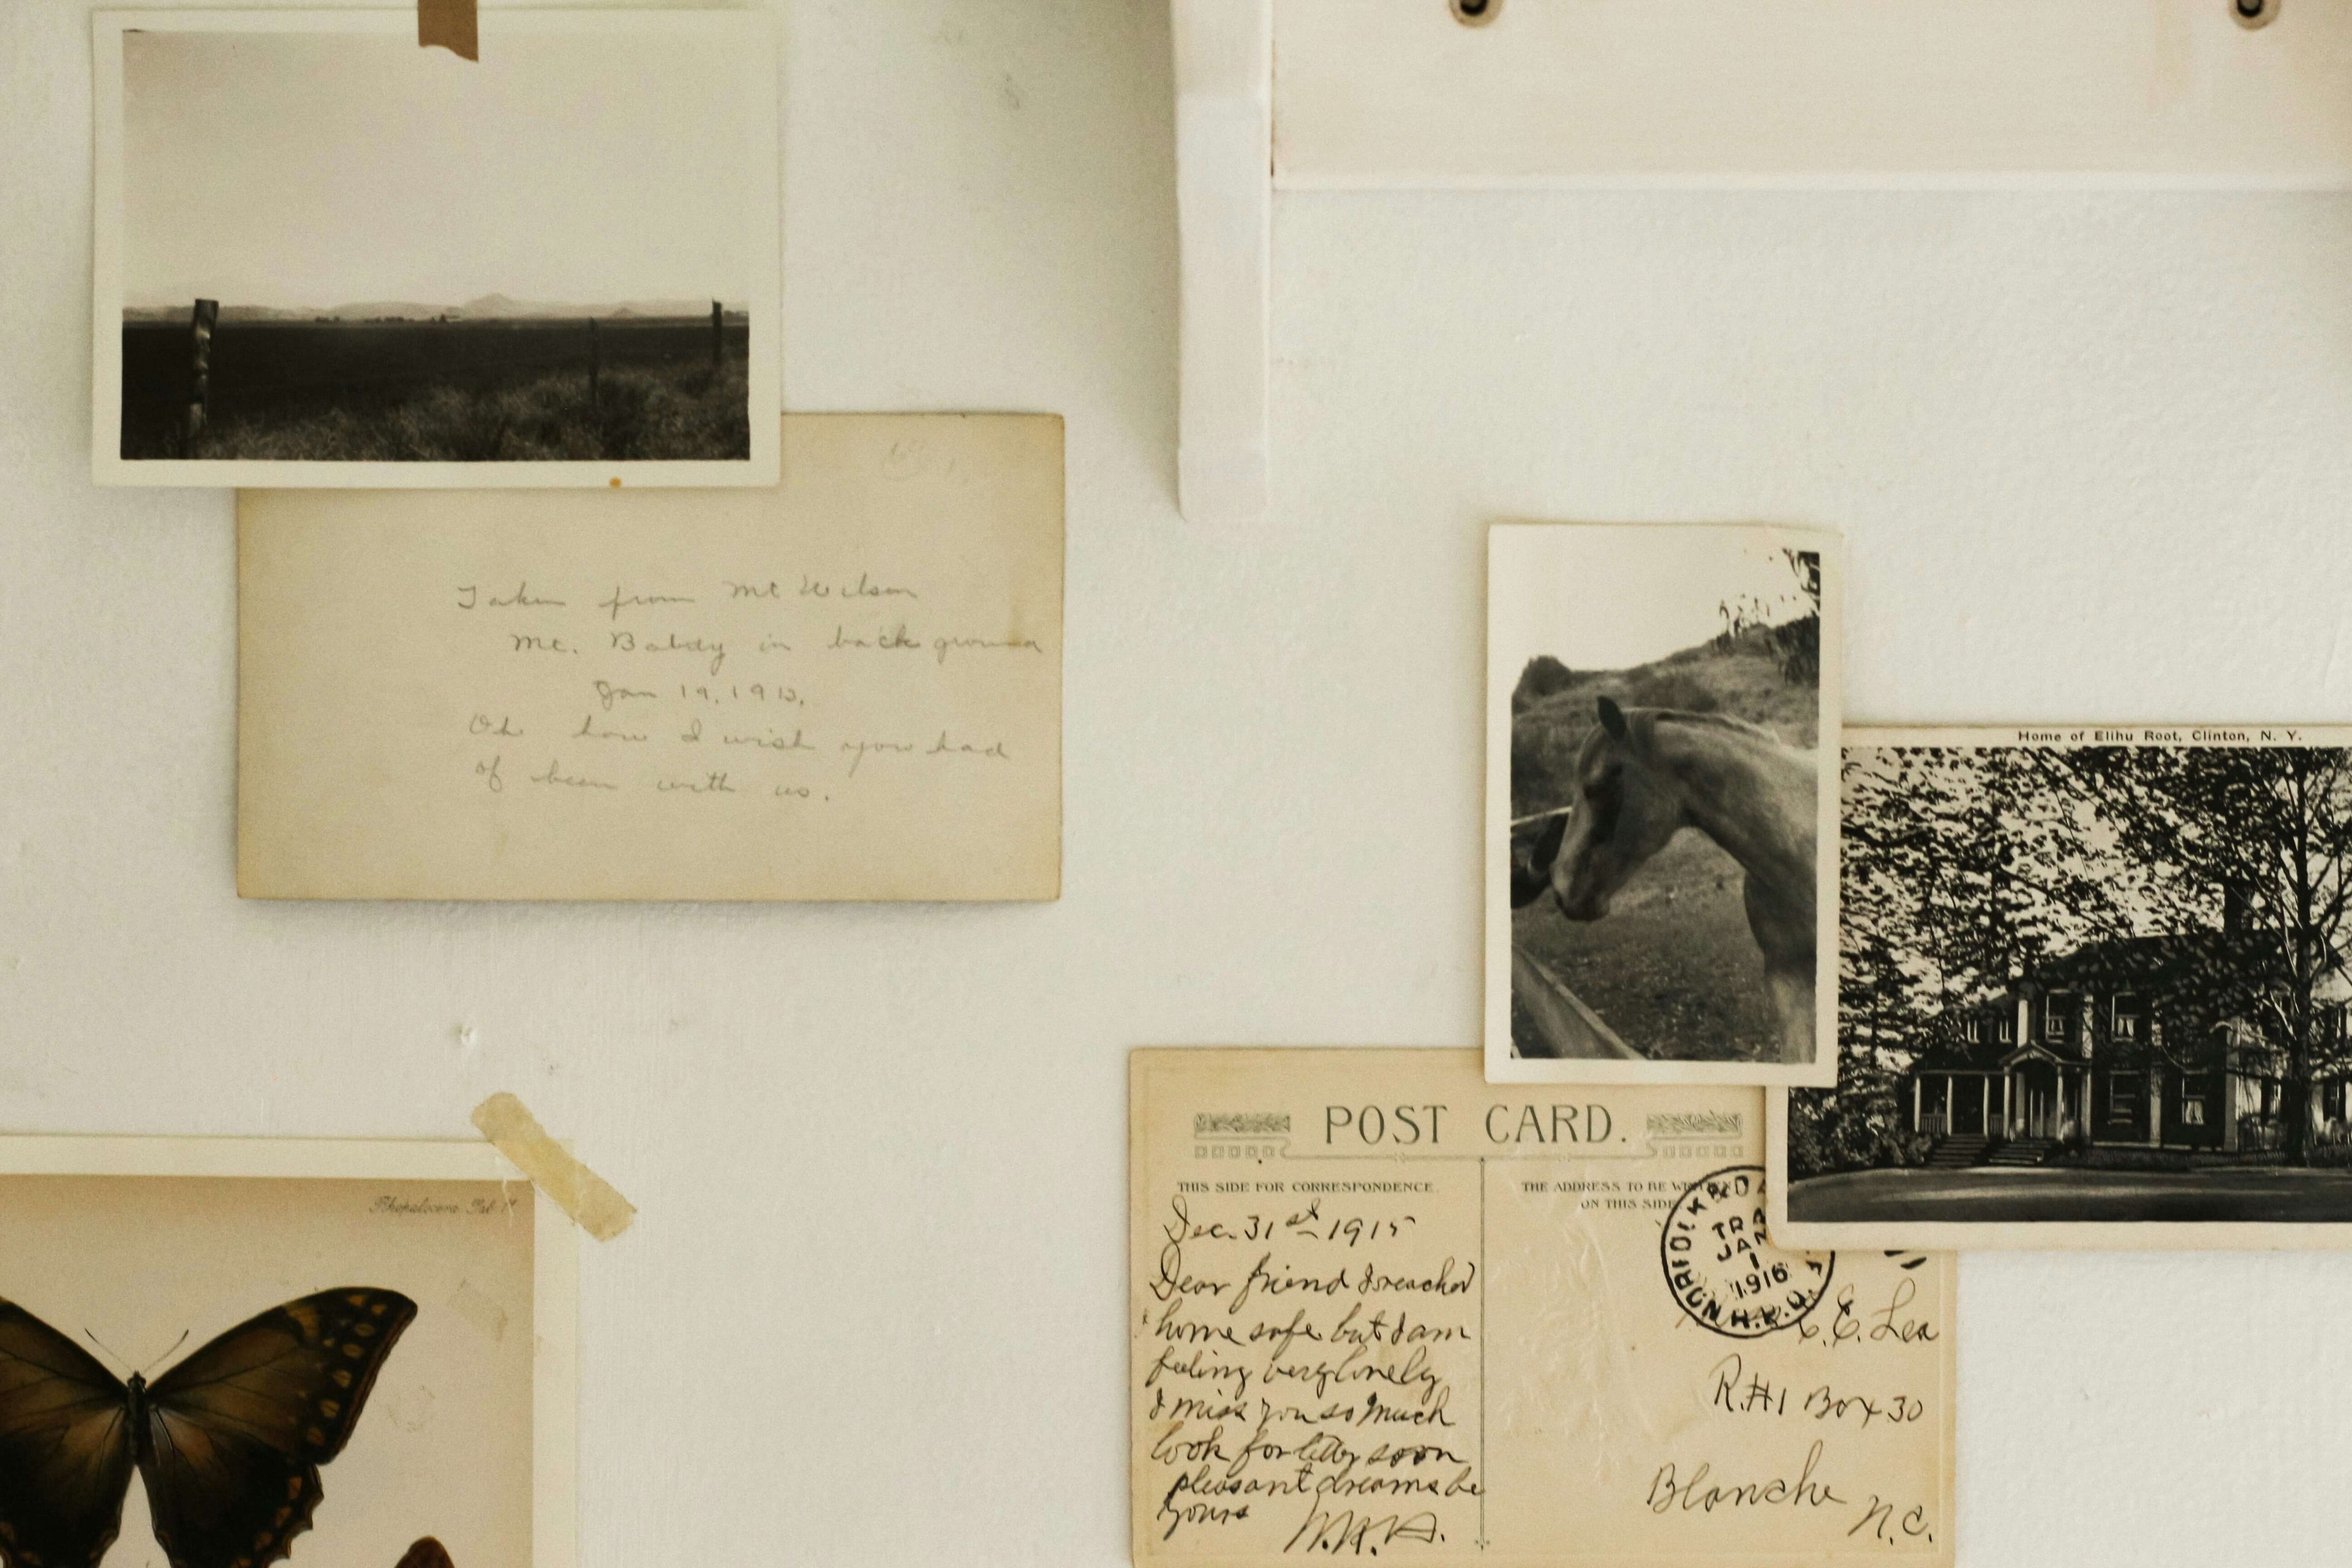 Taken from Mt Wilson
Mt. Baldy in background
Jan 19, 1913.
Oh how I wish you had
of been with us.
Home of Elihu Root, Clinton, N. Y.
POST CARD.
THIS SIDE FOR CORRESPONDENCE.
THE ADDRESS TO BE
ON THIS SIDE
Dec. 31st 1915
Dear friend I reached
home safe but I am
feeling very lonely
I miss you so much
look for letter soon
pleasant dreams be
yours
TRA
JAN
1
1916
C.E. Lea
R.#1 Box 30
Blanche
N.C.
Rhopalocera Tab